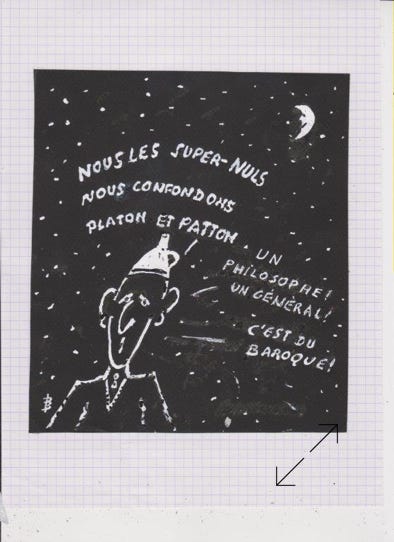 NOUS LES SUPER-NULS
NOUS CONFONDONS
PLATON ET PATTON
UN
PHILOSOPHE!
UN GÉNÉRAL!
C'EST DU
BAROQUE!
B